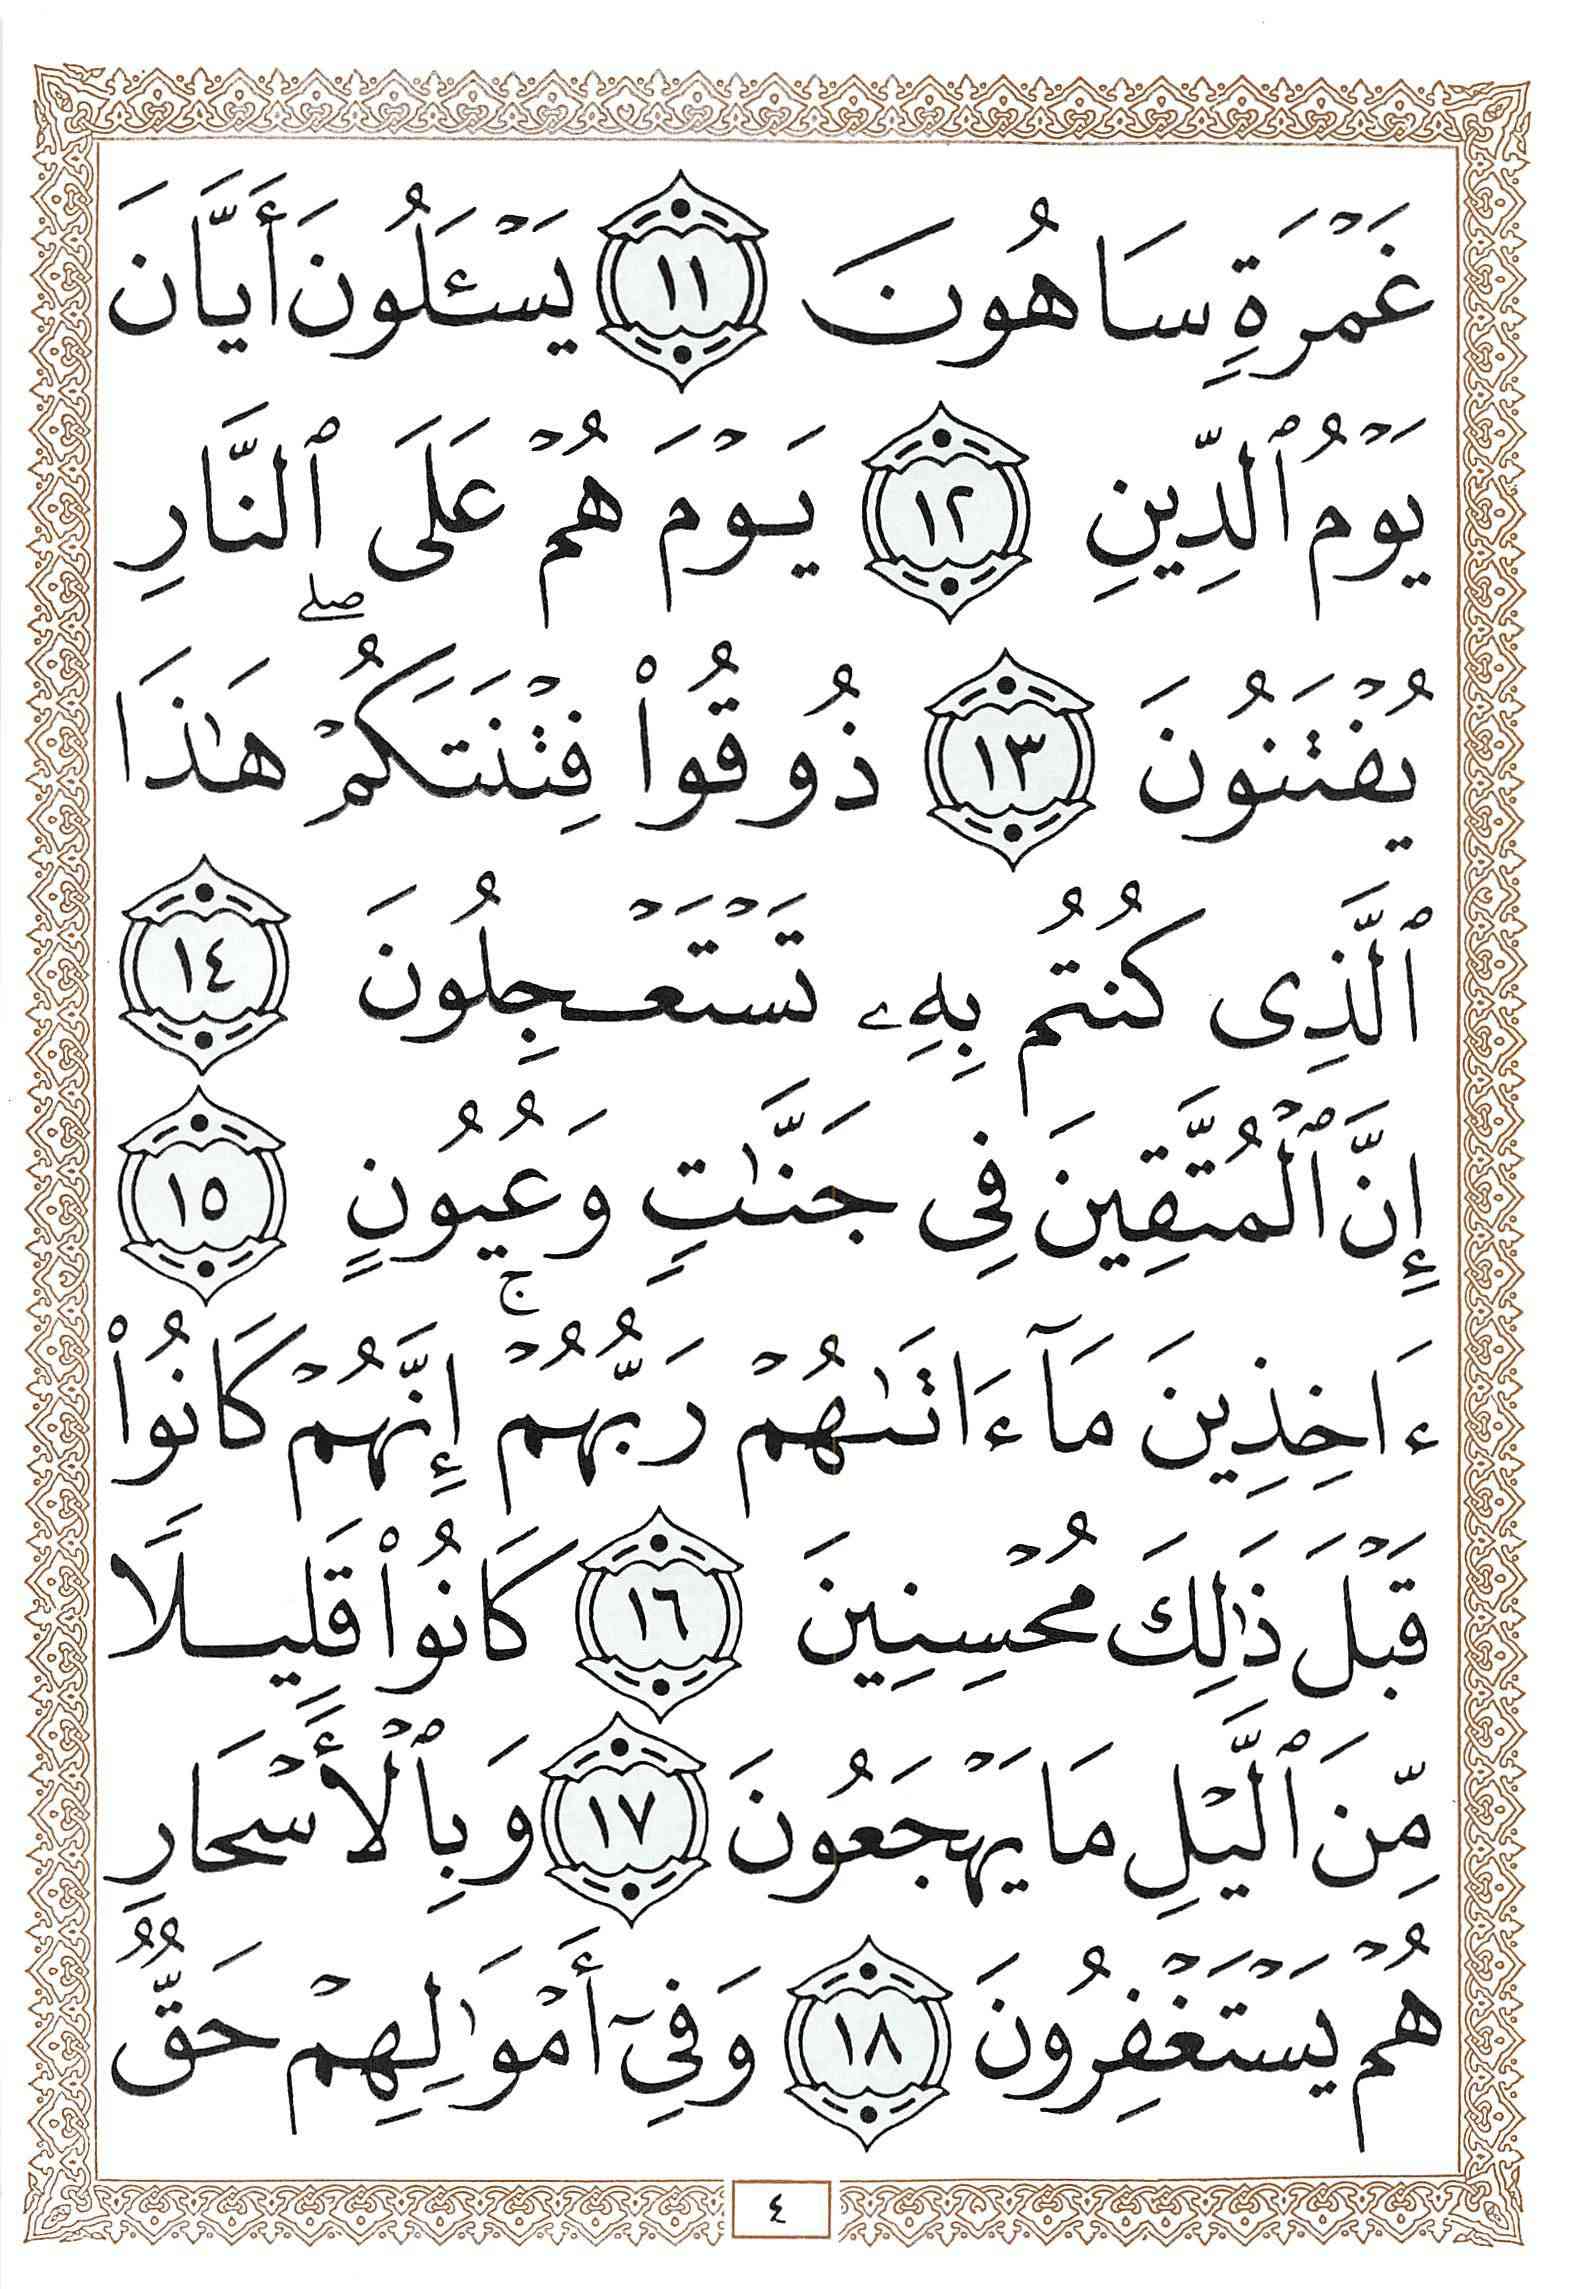 غَمْرَةٍ سَاهُونَ ١١ يَسْـَٔلُونَ أَيَّانَ
يَوْمُ ٱلدِّينِ ١٢ يَوْمَ هُمْ عَلَى ٱلنَّارِ
يُفْتَنُونَ ١٣ ذُوقُوا۟ فِتْنَتَكُمْ هَٰذَا
ٱلَّذِى كُنتُم بِهِۦ تَسْتَعْجِلُونَ ١٤
إِنَّ ٱلْمُتَّقِينَ فِى جَنَّٰتٍ وَعُيُونٍ ١٥
ءَاخِذِينَ مَآ ءَاتَىٰهُمْ رَبُّهُمْ ۚ إِنَّهُمْ كَانُوا۟
قَبْلَ ذَٰلِكَ مُحْسِنِينَ ١٦ كَانُوا۟ قَلِيلًا
مِّنَ ٱلَّيْلِ مَا يَهْجَعُونَ ١٧ وَبِٱلْأَسْحَارِ
هُمْ يَسْتَغْفِرُونَ ١٨ وَفِىٓ أَمْوَٰلِهِمْ حَقٌّ
٤